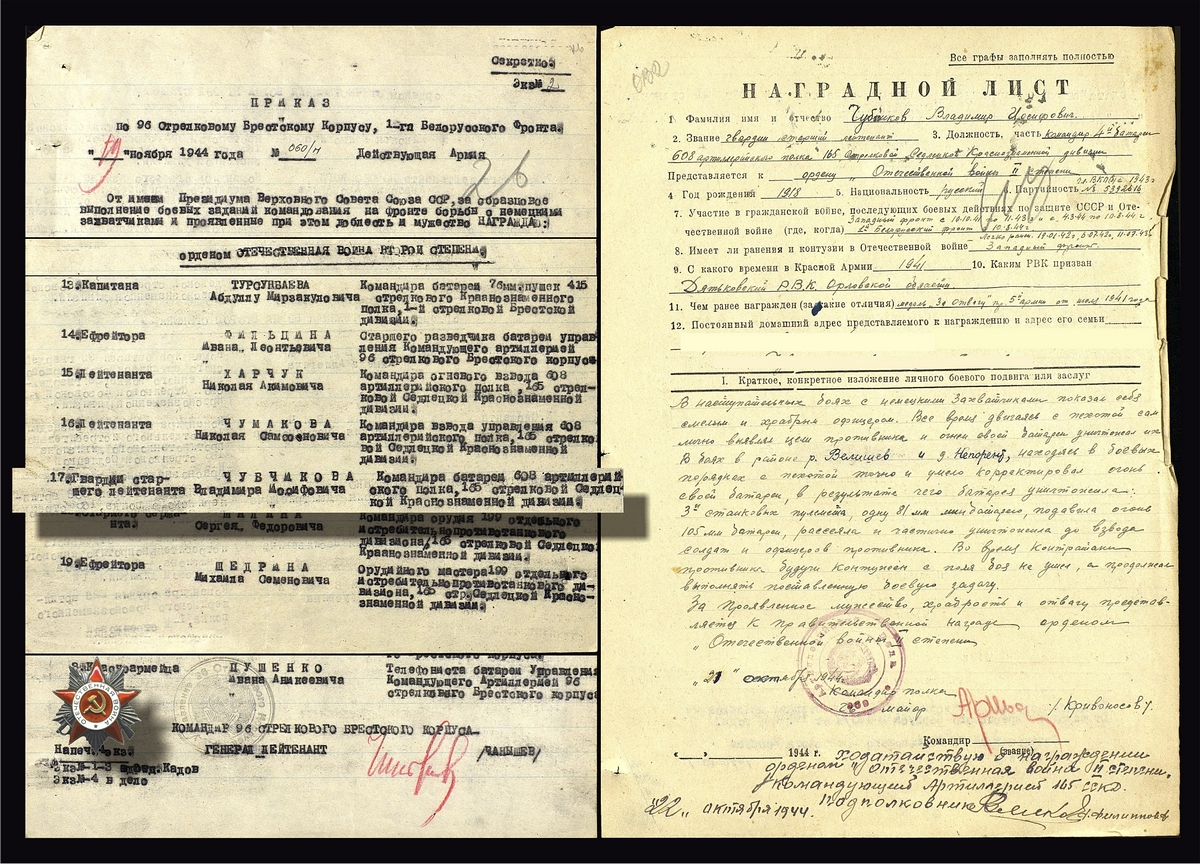 Секретно.
Экз№ 2
ПРИКАЗ
по 96 Стрелковому Брестскому Корпусу, 1-го Белорусского Фронта.
"19" ноября 1944 года № 060/н Действующая Армия
26
От имени Президиума Верховного Совета Союза ССР, за образцовое
выполнение боевых заданий командования на фронте борьбы с немецкими
захватчиками и проявленные при этом доблесть и мужество НАГРАЖДАЮ:
орденом ОТЕЧЕСТВЕННАЯ ВОЙНА ВТОРОЙ СТЕПЕНИ.
13. Капитана ТУРСУНБАЕВА Командира батареи 76мм. пушек 415
Абдуллу Мирзакуловича стрелкового Краснознаменного
полка, 1-й стрелковой Брестской
дивизии.
14. Ефрейтора ФИЛЬЦИНА Старшего разведчика батареи управ-
Ивана Леонтьевича ления Командующего артиллерией
96 стрелкового Брестского корпуса
15. Лейтенанта ХАРЧУК Командира огневого взвода 608
Николая Акимовича артиллерийского полка, 165 стрел-
ковой Седлецкой Краснознаменной
дивизии.
16. Лейтенанта ЧУМАКОВА Командира взвода управления 608
Николая Самсоновича артиллерийского полка, 165 стрелко-
вой Седлецкой Краснознаменной
дивизии.
17. Гвардии стар- ЧУБЧАКОВА Командира батареи 608 артиллерий-
шего лейтенанта Владимира Иосифовича ского полка, 165 стрелковой Седлец-
кой Краснознаменной дивизии.
Командира орудия 199 отдельного
нта. Сергея Федоровича истребительнопротивотанкового
дивизиона, 165 стрелковой Седлецкой
Краснознаменной дивизии.
19. Ефрейтора ЩЕДРИНА Орудийного мастера 199 отдельного
Михаила Семеновича истребительнопротивотанкового ди-
визиона, 165 стр. Седлецкой Красно-
знаменной дивизии.
Красноармейца ПУШЕНКО Телефониста батареи Управления
Ивана Аникеевича Командующего Артиллерией 96
стрелкового Брестского корпуса
ОТЕЧЕСТВЕННАЯ ВОЙНА
КОМАНДИР 96 СТРЕЛКОВОГО БРЕСТСКОГО КОРПУСА
ГЕНЕРАЛ ЛЕЙТЕНАНТ /ЧАНЫШЕВ/
Напеч. 4 экз.
Экз№ 1-3 в отд. Кадов
Экз№ 4 в дело
Все графы заполнять полностью
НАГРАДНОЙ ЛИСТ
1 Фамилия имя и отчество Чубчиков Владимир Иосифович.
2. Звание гвардии старший лейтенант 3. Должность, часть командир 4й батареи
608 артиллерийского полка 165 стрелковой Седлецкой Краснознаменной дивизии
Представляется к ордену "Отечественной войны II степени
4 Год рождения 1918 5. Национальность русский 6. Партийность чл. ВКП(б) с 1943 г. № 5332616
7. Участие в гражданской войне, последующих боевых действиях по защите СССР и Оте-
чественной войне (где, когда) Западный фронт с 10.10.41 по 11.43 г и с 4.3.44 по 10.8.44 г. 1й Белорусский фронт с 10.8.44 г
8. Имеет ли ранения и контузии в Отечественной войне Легко ран. 19.01.42 г 5.07.42, 11.07.43 г Западный фронт.
9. С какого времени в Красной Армии 1941 10. Каким РВК призван
Дятьковский Р.В.К. Орловской области.
11. Чем ранее награжден (за какие отличия) медаль "За отвагу" пр. 5й армии от июля 1941 года
12. Постоянный домашний адрес представляемого к награждению и адрес его семьи
I. Краткое, конкретное изложение личного боевого подвига или заслуг
В наступательных боях с немецкими захватчиками показал себя
смелым и храбрым офицером. Все время двигаясь с пехотой сам
лично выявлял цели противника и огнем своей батареи уничтожал их.
В боях в районе р. Велишев и д. Непорент, находясь в боевых
порядках с пехотой точно и умело корректировал огонь
своей батареи, в результате чего батарея уничтожила:
3 станковых пулемета, одну 81 мм минбатарею, подавила огонь
105 мм батареи, рассеяла и частично уничтожила до взвода
солдат и офицеров противника. Во время контратаки
противника будучи контужен с поля боя не ушел, а продолжал
выполнять поставленную боевую задачу.
За проявленное мужество, храбрость и отвагу представ-
ляется к правительственной награде орденом
"Отечественной войны II степени
"21" октября 1944
Командир полка
майор /Кривоносов/
Командир
(звание)
1944 г.
Ходатайствую о награждении
орденом "Отечественная война II степени.
Командующий Артиллерией 165 СКД
Подполковник Филиппов
"22" октября 1944.